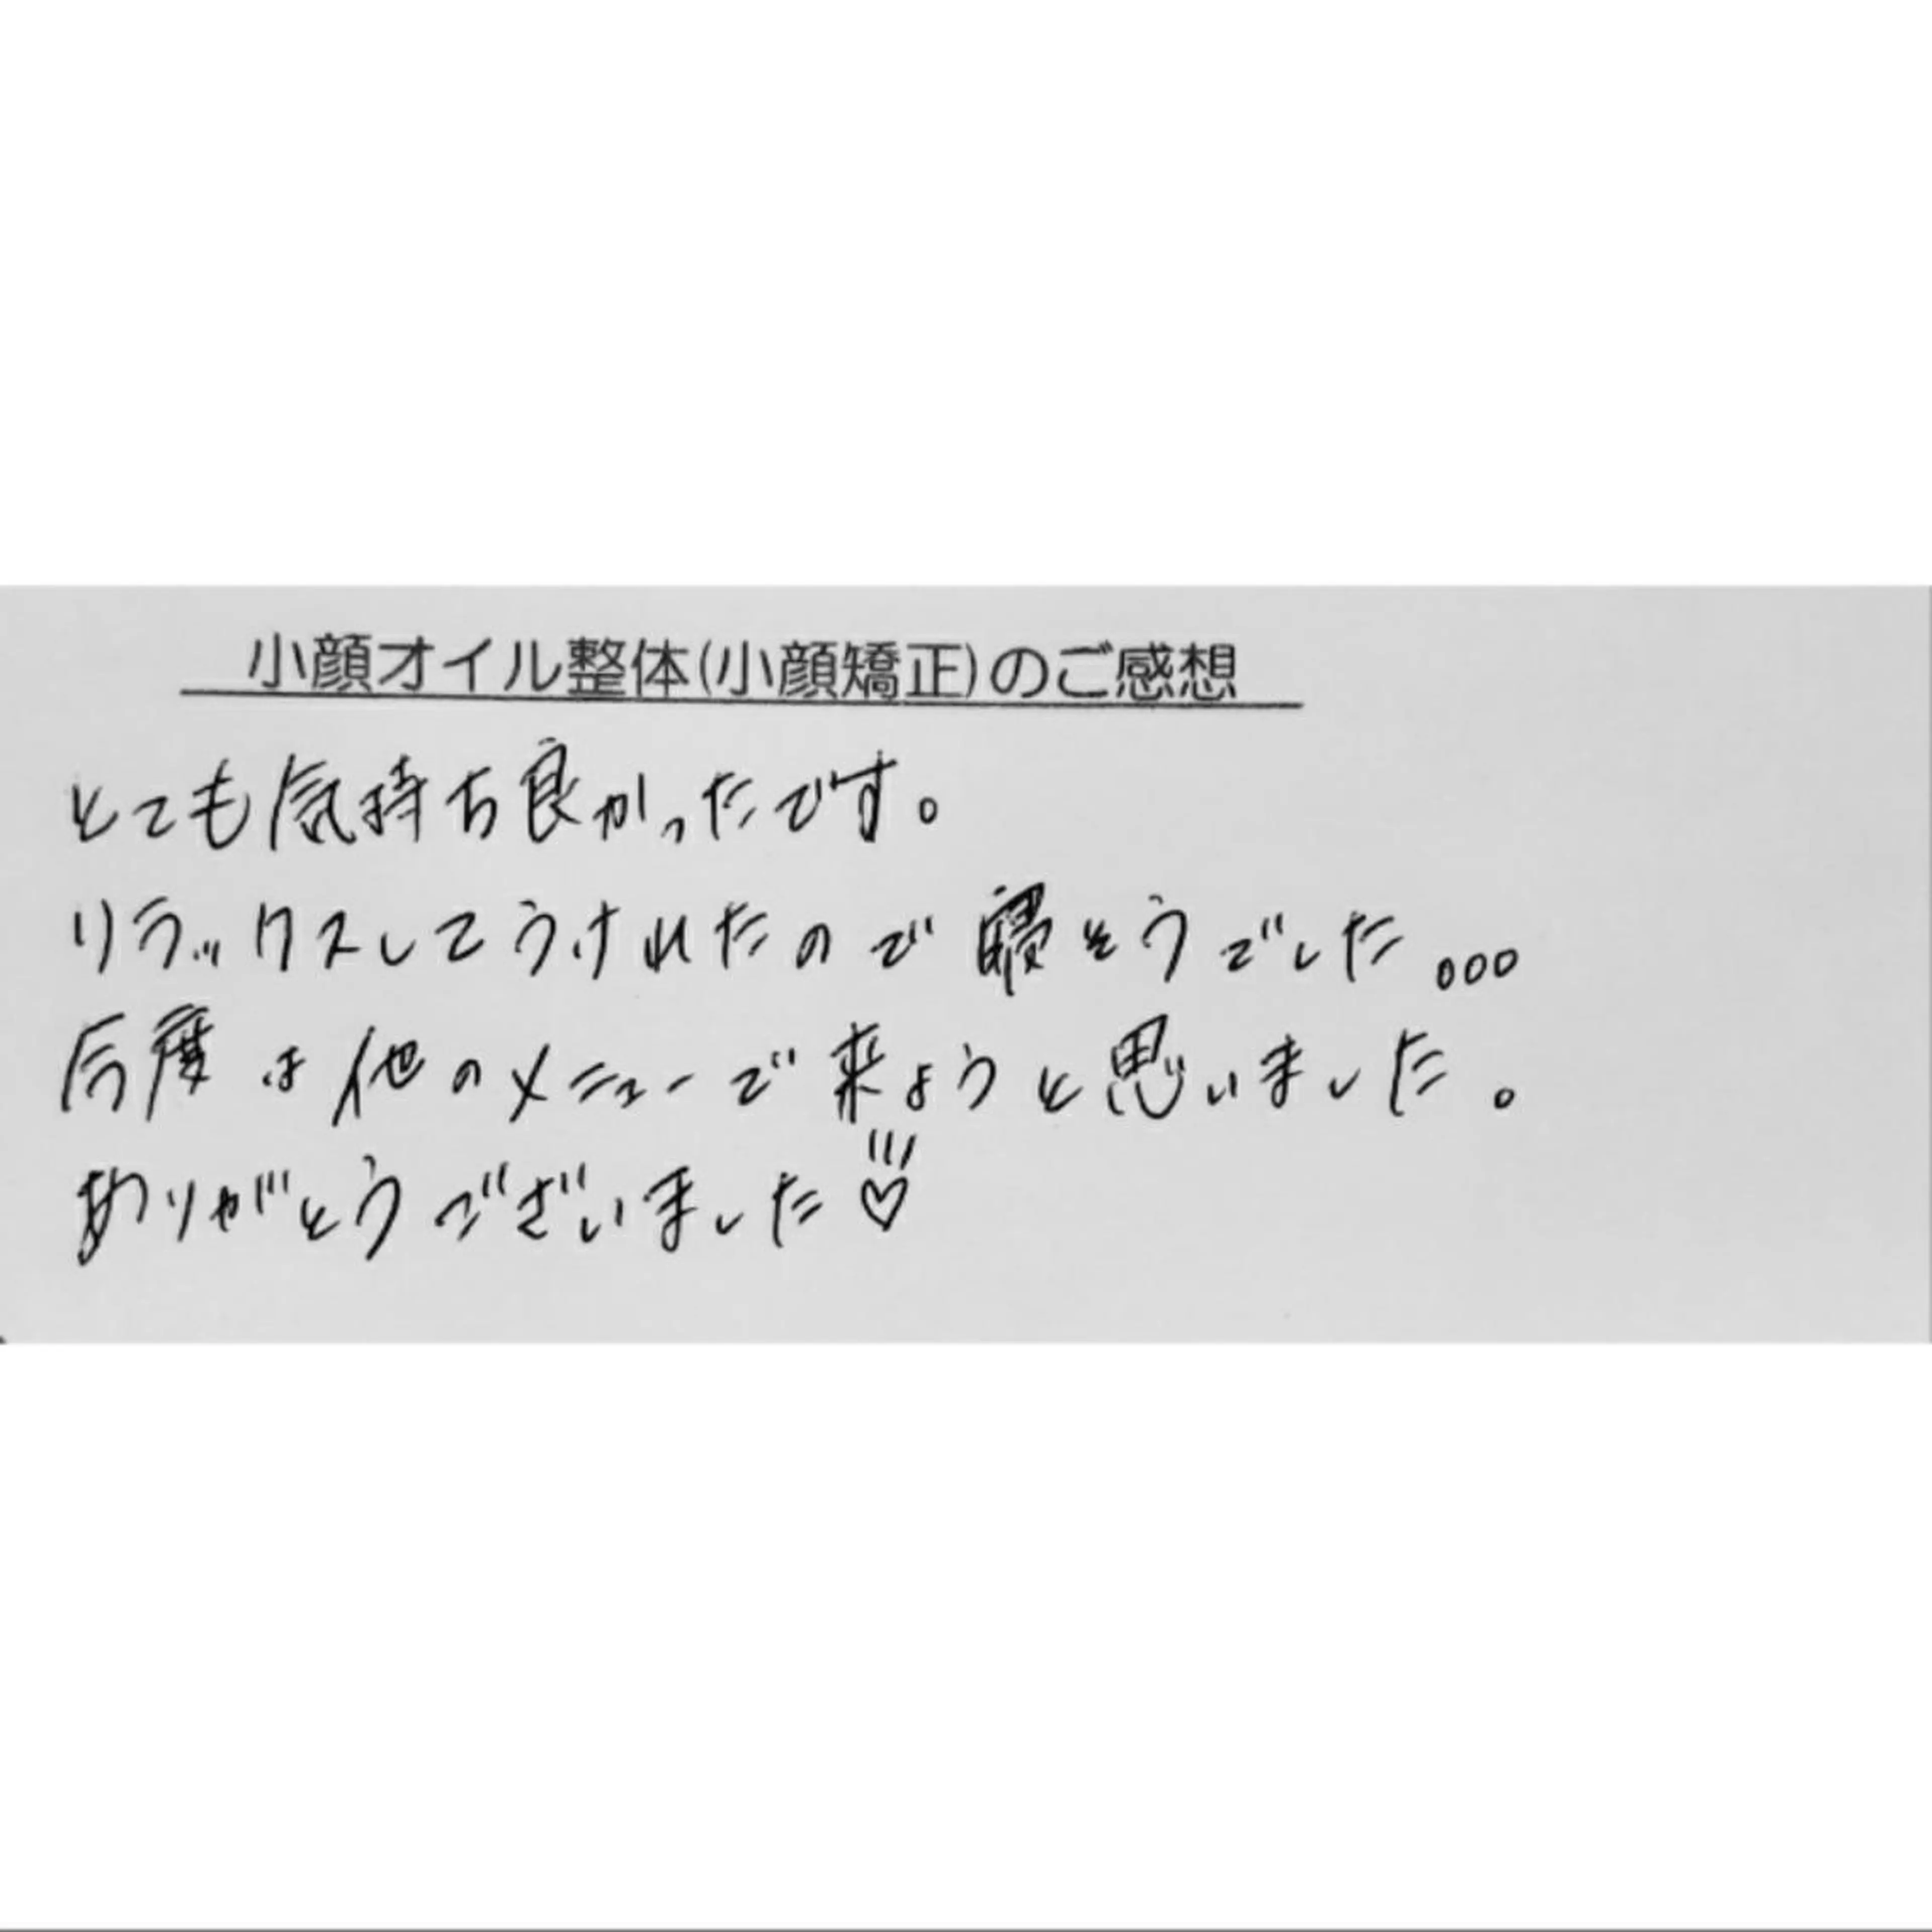 小顔オイル整体(小顔矯正)のご感想
とても気持ち良かったです。
リラックスしてうけれたので寝そうでした。。。
今度は他のメニューで来ようと思いました。
ありがとうございました♡